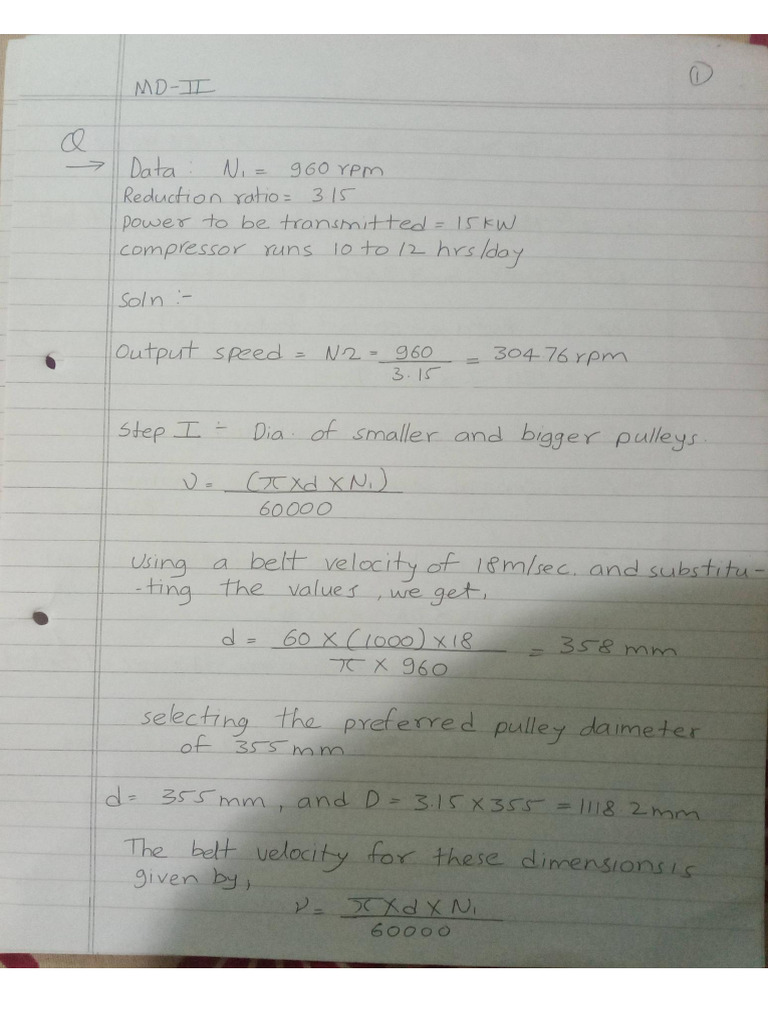 ①
MD-II
Q
→ Data: N₁ = 960 rpm
Reduction ratio = 315
power to be transmitted = 15 KW
compressor runs 10 to 12 hrs/day
Soln :-
Output speed = N2 = 960 / 3.15 = 304.76 rpm
Step I :- Dia. of smaller and bigger pulleys.
v = (π x d x N₁) / 60000
Using a belt velocity of 18m/sec. and substitu-
-ting the values, we get,
d = 60 x (1000) x 18 / π x 960 = 358 mm
selecting the preferred pulley daimeter
of 355 mm
d = 355 mm, and D = 3.15 x 355 = 1118.2 mm
The belt velocity for these dimensions is
given by,
v = π x d x N₁ / 60000